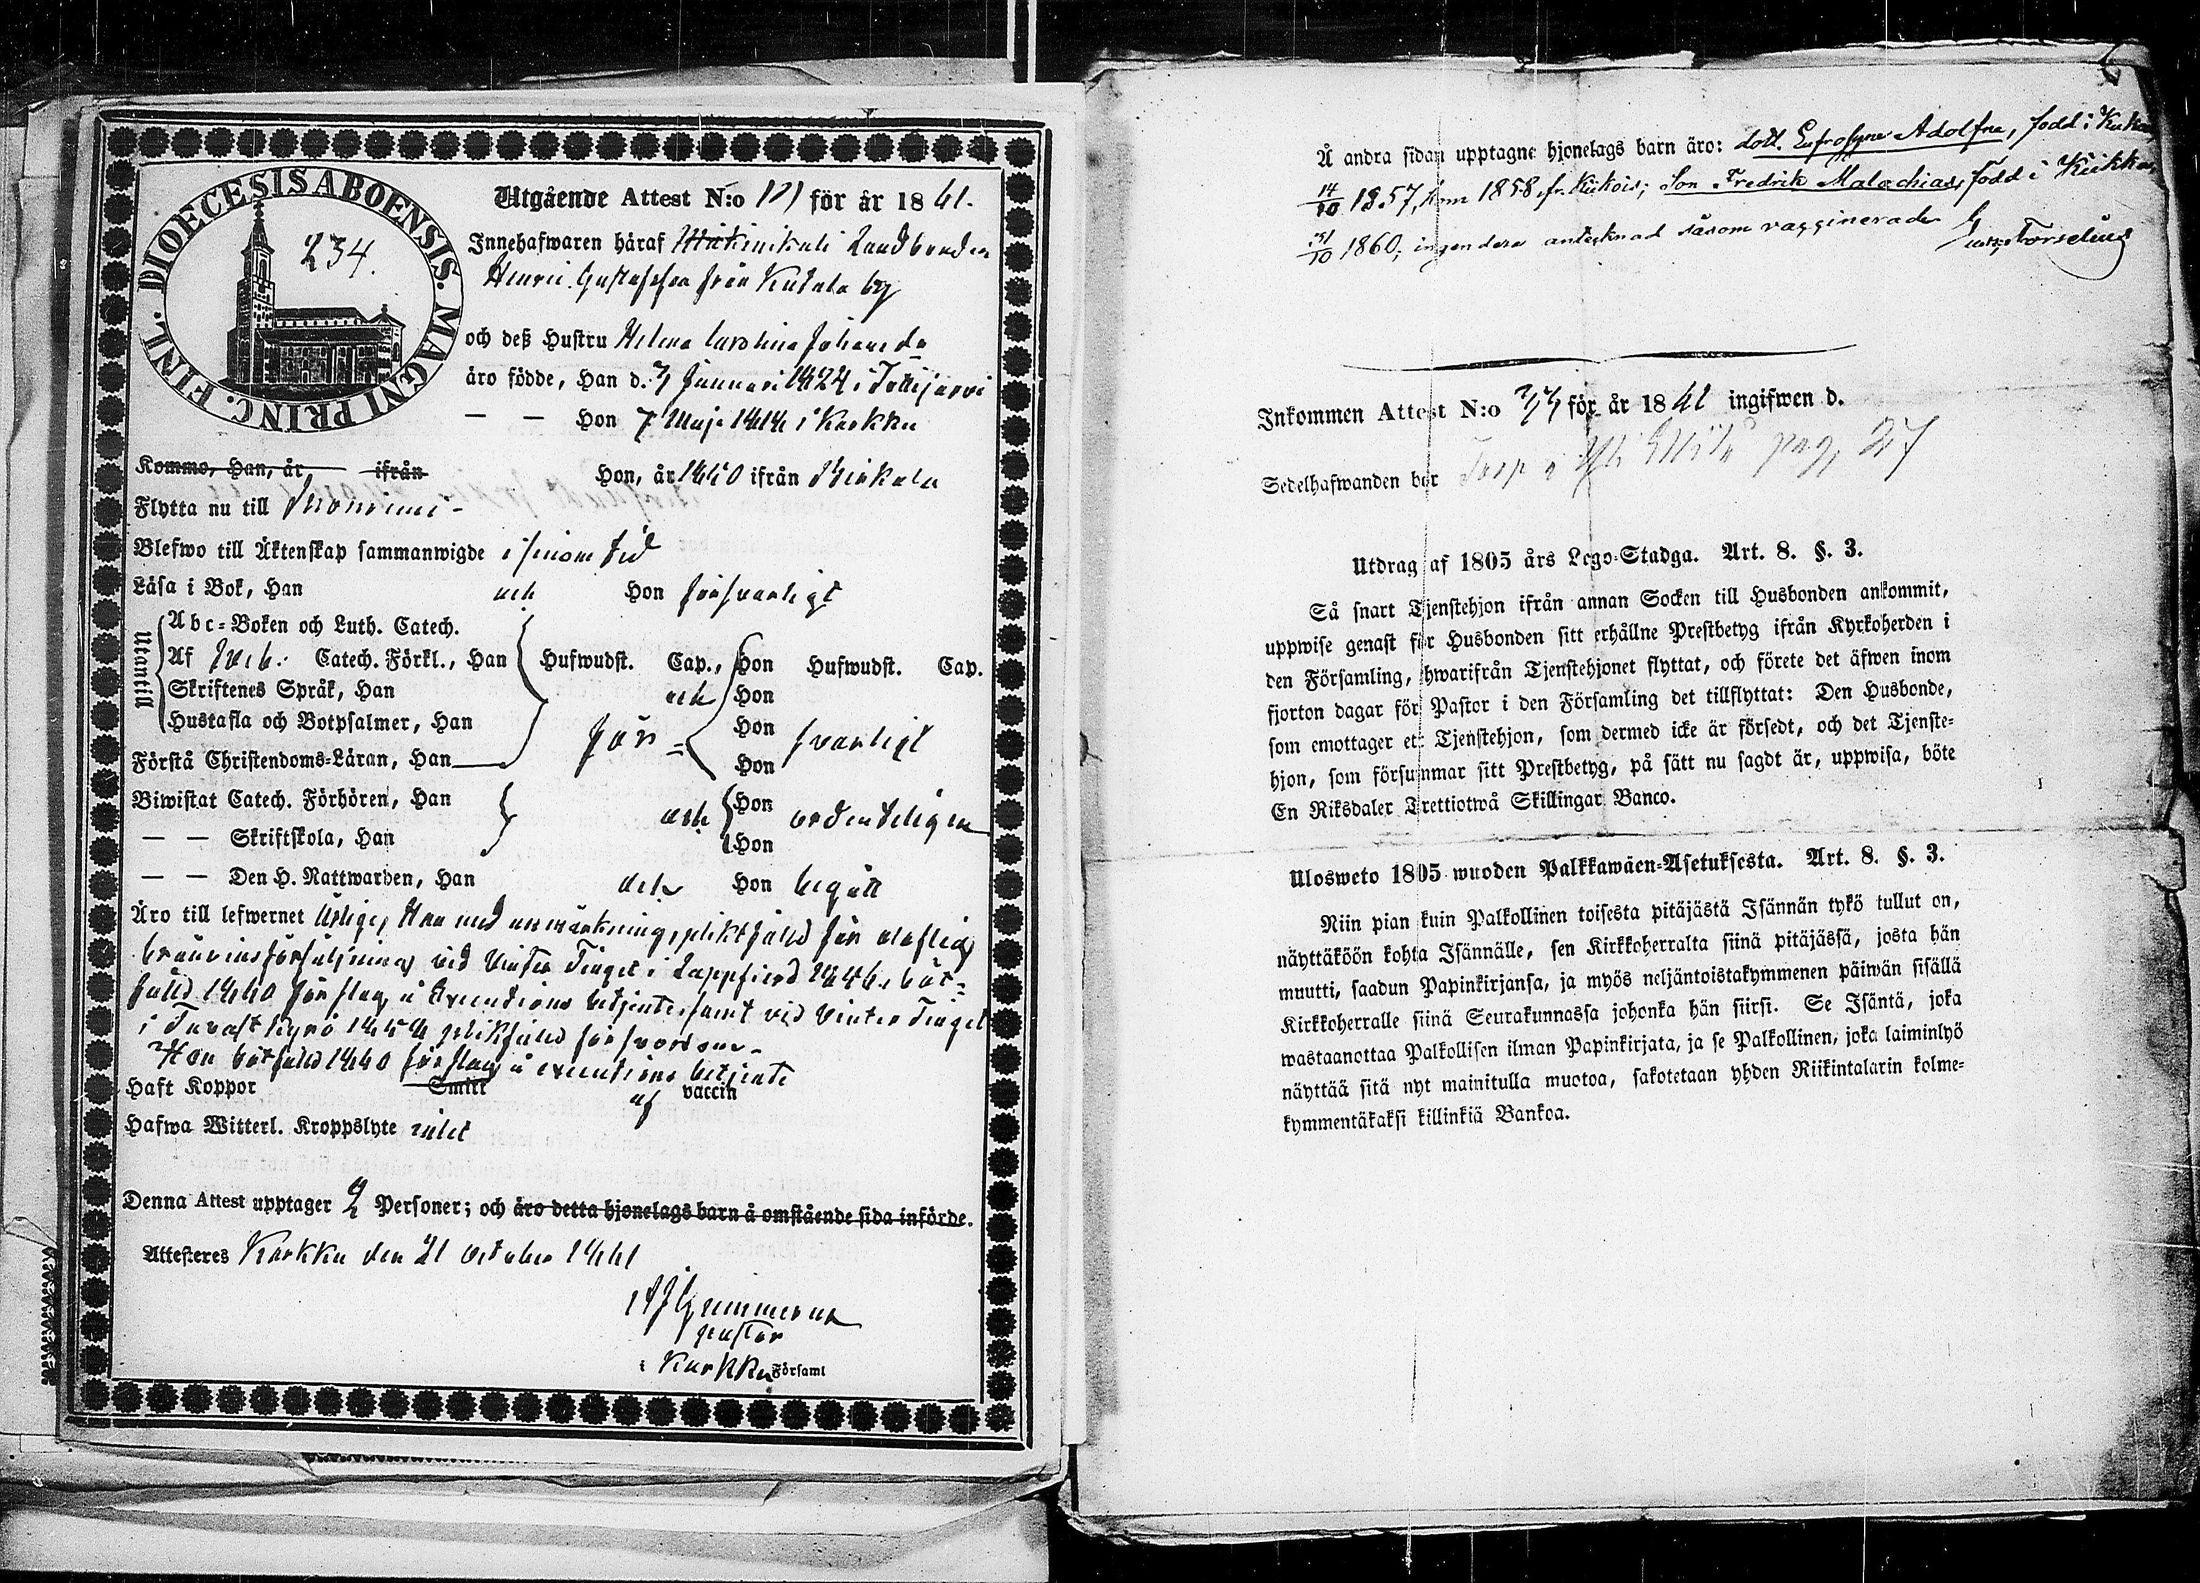 DIOECESIS ABOENSIS. MAGNI PRINC. FINL.
234.
Utgående Attest N:o 121 för år 1861.
Innehafwaren häraf Landbonden
Henric Gustafsson från Kutala by
och deß Hustru Helena Carolina Johansdr
äro födde, Han d. Januari 1824 i Tottijärvi
— — Hon 7 Maji 1818 i Karkku
Kommo, Han, år ifrån Hon, år 1850 ifrån Birkala
Flytta nu till
Blefwo till Äktenskap sammanwigde i sinom tid
Läsa i Bok, Han och Hon försvarligt
Utantill
Abc-Boken och Luth. Catech.
Af Sveb. Catech. Förkl., Han Hufwudst. Cap., Hon Hufwudst. Cap.
Skriftenes Språk, Han och Hon
Hustafla och Botpsalmer, Han för= Hon svarligt
Förstå Christendoms-Läran, Han Hon
Biwistat Catech. Förhören, Han och Hon ordentligen
— — Skriftskola, Han Hon
— — Den H. Nattwarden, Han och Hon begått
Äro till lefwernet ärlige, Han med anmärkning, pliktfälld för olaflig
bränvinsförsäljning vid Vinter Tinget i Lappfierd 1846, böt=
fälld 1860 för slag å Executions betjente, samt vid Vinter Tinget
i Tavastkyrö 1858 pliktfälld för svordom.
Hon bötfälld 1860 för slag å executions betjente
Haft Koppor Smitt af vaccin
Hafwa Witterl. Kroppslyte intet
Denna Attest upptager 2 Personer; och äro detta hjonelags barn å omstående sida införde.
Attesteras Karkku den 21 october 1861
pastor
i Karkku Församl
Å andra sidan upptagne hjonelags barn äro: dott. Eufrosyne Adolfna, född i
14/10 1857, kom 1858 fr. Kiikois; Son Fredrik Malachias, född i Kiikka,
31/10 1860; ingendera antecknad såsom vaccinerade. Gust. Forselius
Inkommen Attest N:o 77 för år 1861 ingifwen d.
Sedelhafwanden bor Torp pag. 27
Utdrag af 1805 års Lego-Stadga. Art. 8. §. 3.
Så snart Tjenstehjon ifrån annan Socken till Husbonden ankommit,
uppwise genast för Husbonden sitt erhållne Prestbetyg ifrån Kyrkoherden i
den Församling, hwarifrån Tjenstehjonet flyttat, och förete det äfwen inom
fjorton dagar för Pastor i den Församling det tillflyttat: Den Husbonde,
som emottager ett Tjenstehjon, som dermed icke är försedt, och det Tjenste-
hjon, som försummar sitt Prestbetyg, på sätt nu sagdt är, uppwisa, böte
En Riksdaler Trettiotwå Skillingar Banco.
Ulosweto 1805 wuoden Palkkawäen-Asetuksesta. Art. 8. §. 3.
Niin pian kuin Palkollinen toisesta pitäjästä Isännän tykö tullut on,
näyttäköön kohta Isännälle, sen Kirkkoherralta siinä pitäjässä, josta hän
muutti, saadun Papinkirjansa, ja myös neljäntoistakymmenen päiwän sisällä
Kirkkoherralle siinä Seurakunnassa johonka hän siirsi. Se Isäntä, joka
wastaanottaa Palkollisen ilman Papinkirjata, ja se Palkollinen, joka laiminlyö
näyttää sitä nyt mainitulla muotoa, sakotetaan yhden Riikintalarin kolme-
kymmentäkaksi killinkiä Bankoa.